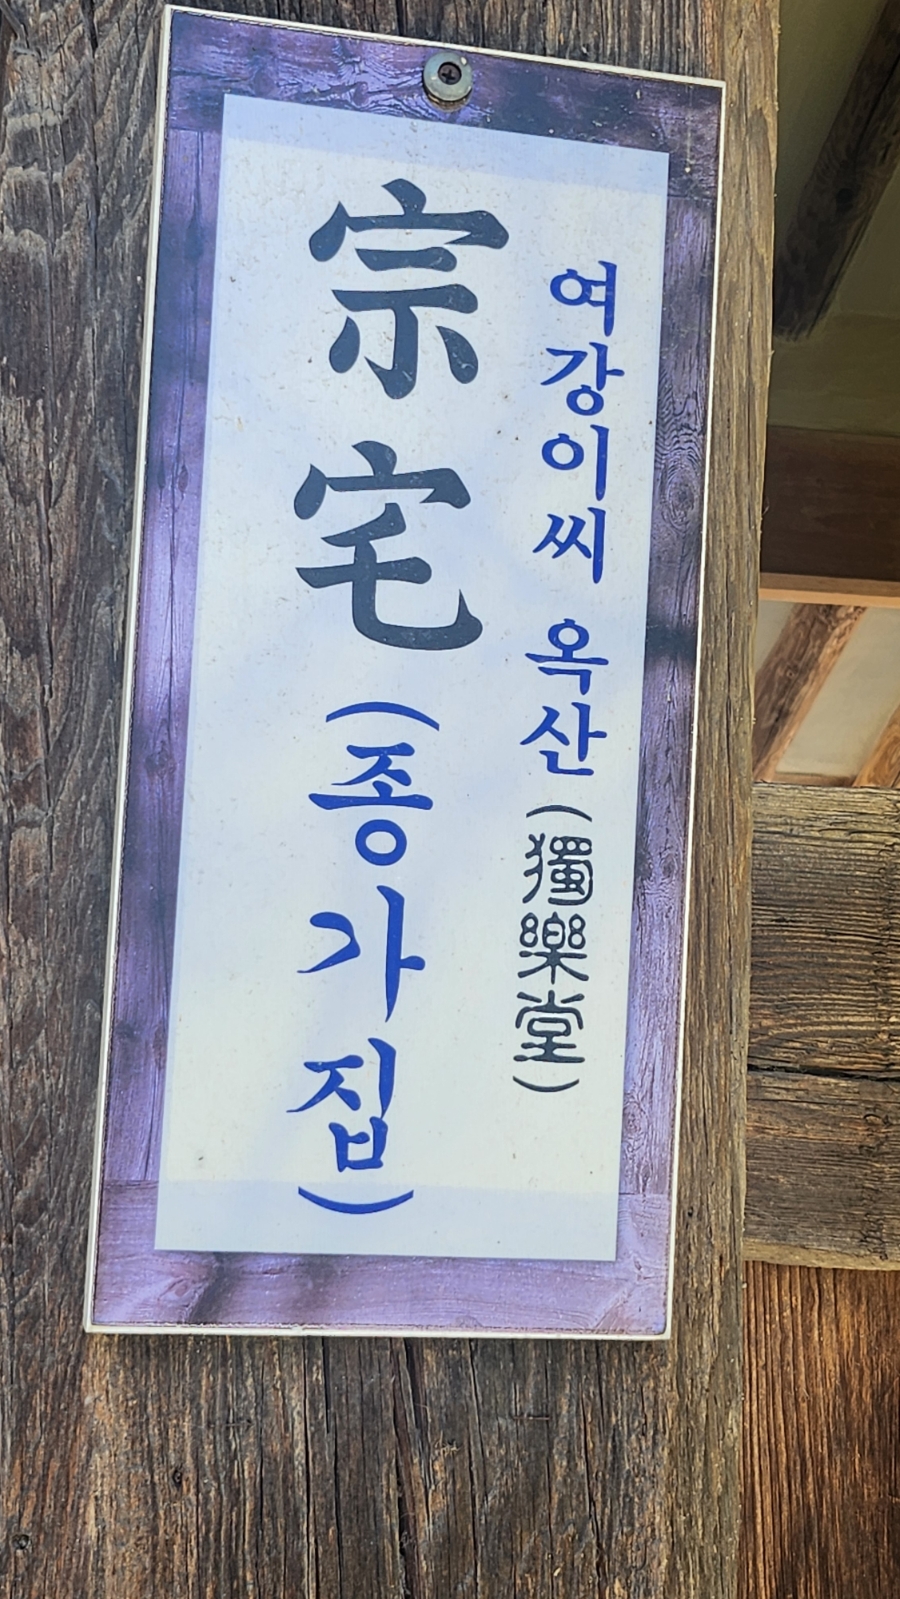 여강이씨 옥산 (獨樂堂)
宗宅 (종가집)